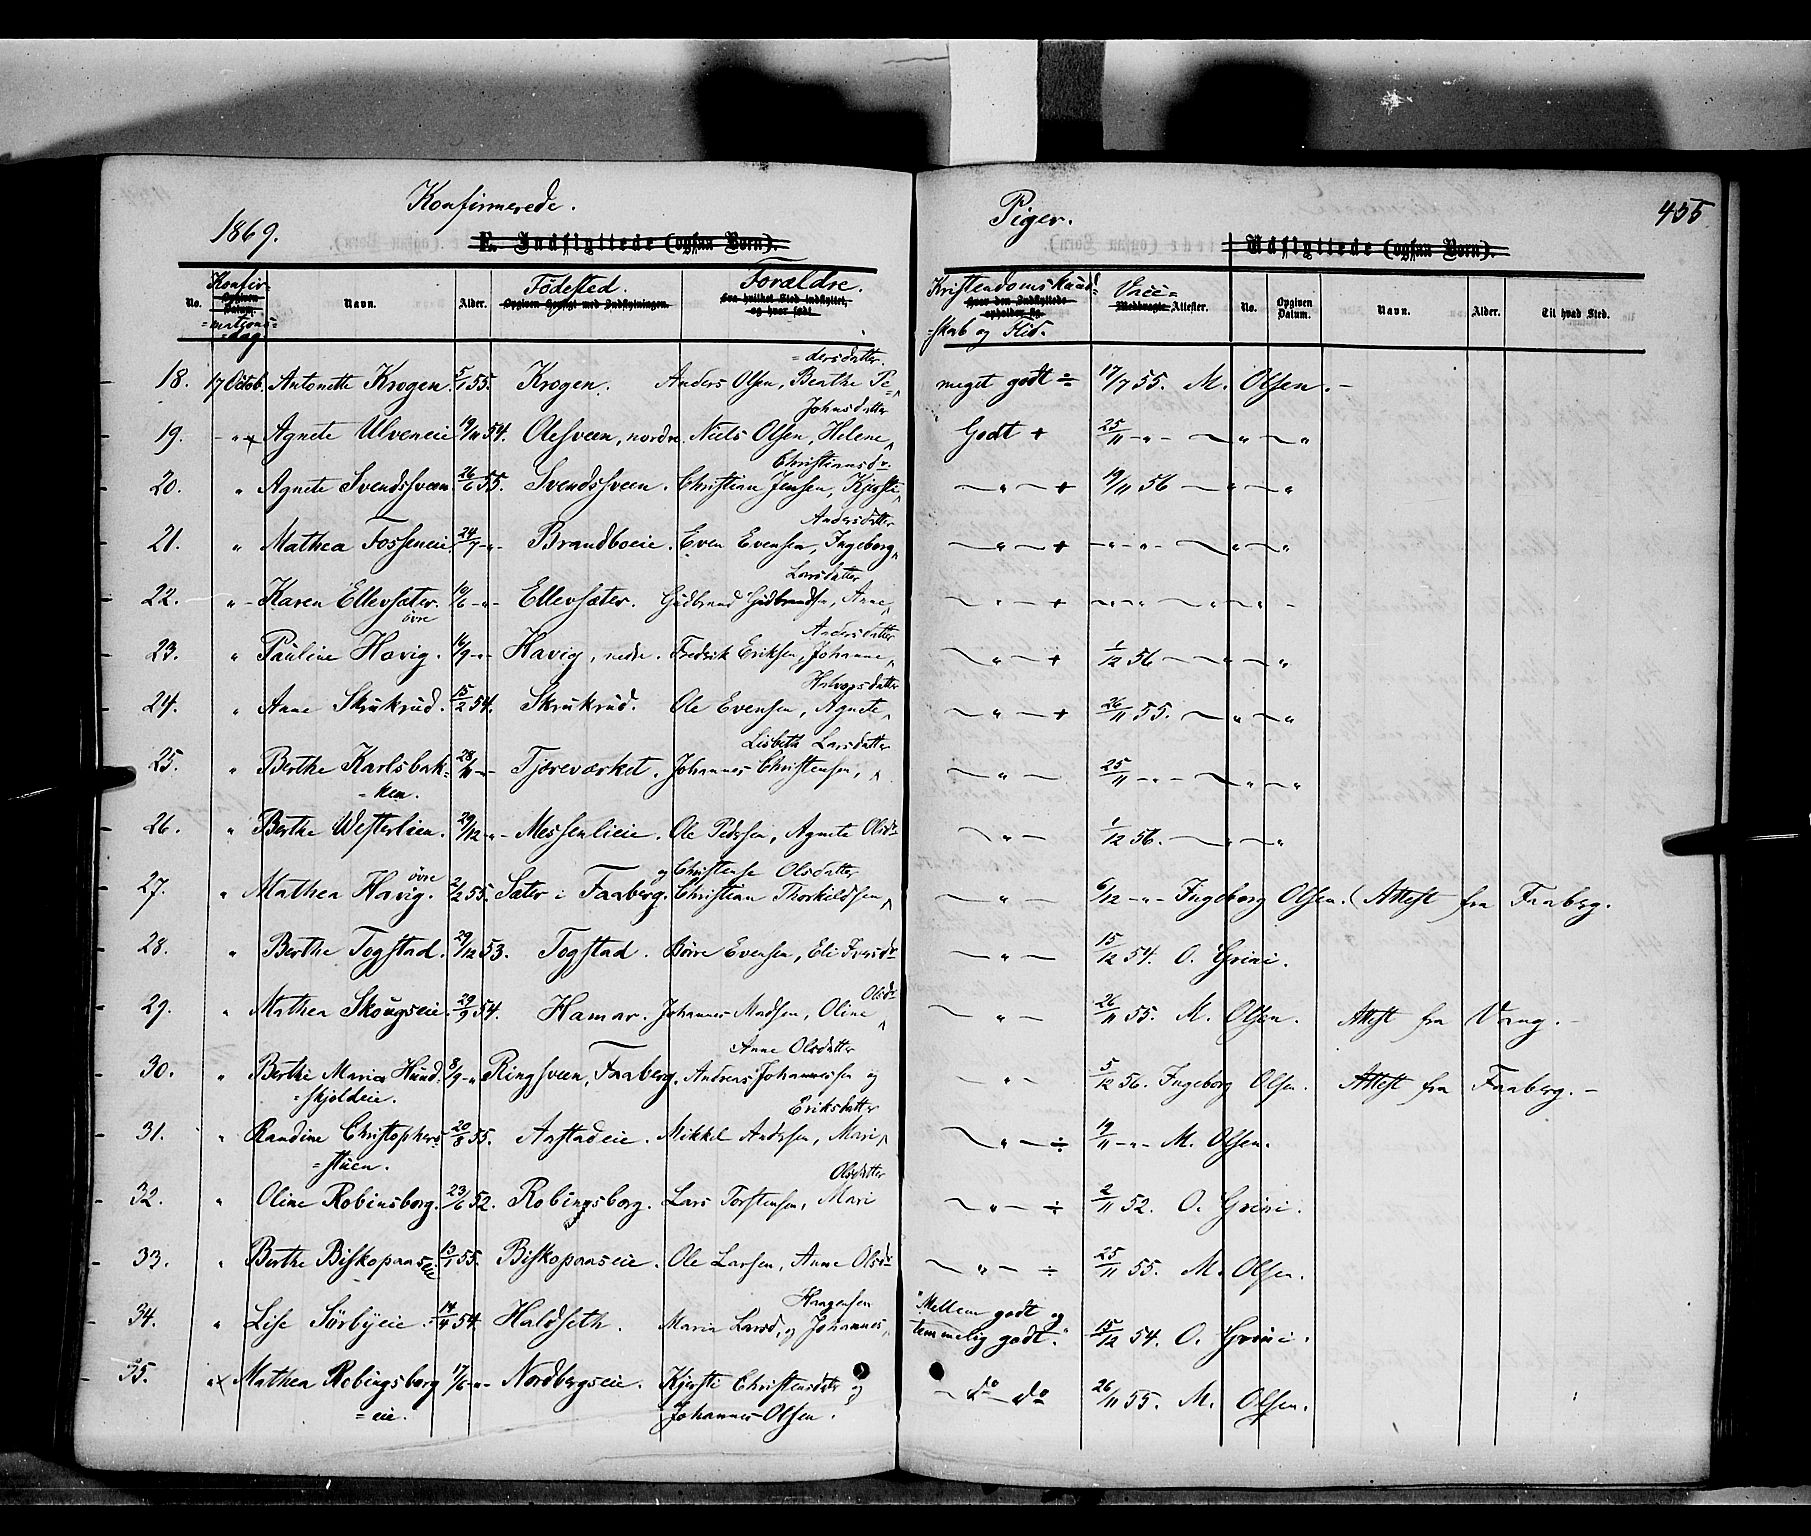 Konfirmerede. Piger. 455
1869. E. Indflyttede (ogsaa Børn). Udflyttede (ogsaa Børn).
No. Konfirmations=dag Opgiven Datum. Navn. Alder. Fødested. Opgiven Hensigt med Indflytningen. Forældre. fra hvilket Sted indflyttet, og hvor født. Kristendomskund=skab og Flid. Hvor den Indflyttede opholder sig. Vacc= Medbragte Attester. No. Opgiven Datum. Navn. Alder. Til hvad Sted.
18. 17 Octob. Antonette Krogen. 5/1 55. Krogen. Anders Olsen, Berthe Pe=dersdatter meget godt ÷ 17/7 55. M. Olsen. –
19. – " x Agnete Ulveneie 19/11 54. Olesveen, nordre. Niels Olsen, Helene Johnsdatter Godt + 25/11 – " – " "
20. " Agnete Svendsveen 26/6 55. Svendsveen. Christian Jensen, Kjersti Christiansdr. – " – + 19/11 56 – " – "
21. " Mathea Fosseneie 24/7 – " – Brandboeie. Even Evensen, Ingeborg Andersdatter – " – + – " – " – " – "
22. " – Karen Ellevsæter. 10/6 – " – Ellevsæter. Gudbrand Gudbrandsen, Anne Larsdatter – " – + – " – " – " –
23. " Pauline Havig. øvre 16/9 – " – Havig, nedre. Fredrik Eriksen, Johanne Andersdatter – " – + 1/12 56 – " – "
24. " Anne Skrukrud. 15/2 54. Skrukrud. Ole Evensen, Agnete Halvorsdatter – " – + 26/11 55. – " – "
25. " Berthe Karlsbak=ken. 28/11 – " – Tjæreværket. Johannes Christensen, Lisbeth Larsdatter – " – 25/11 – " – " – "
26. " Berthe Westerlien. 29/12 – " – Messenlieie. Ole Pedersen, Agnete Olsdr – " – 1/12 56. – " – "
27. " Mathea Havig. øvre 2/2 55. Sæter i Faaberg. Christian Thorkildsen og Christense Olsdatter – " – 6/12 – " – Ingeborg Olsen. (Attest fra Faaberg.
28. " Berthe Togstad. 29/12 53. Togstad. Børre Evensen, Eli Iversdr – " – 15/12 54. O. Grini.
29. " Mathea Skougseie. 29/9 54. Hamar. Johannes Madsen, Oline Olsdr – " – 26/11 55. M. Olsen. Attest fra Vang. –
30. " Berthe Maria Hund=skjoldeie. 8/9 – " Ringsveen, Faaberg. Andreas Johannessen og Anne Olsdatter – " – 5/12 56. Ingeborg Olsen. Attest fra Faaberg. –
31. " Randine Christophers=stuen. 20/8 55. Aastadeie. Mikkel Andersen, Mari Eriksdatter – " – ÷ 19/11 – " – M. Olsen.
32. " Oline Robinsborg. 23/6 52. Robingsborg. Lars Torstensen, Mari Olsdatter – " – ÷ 2/11 52. O. Grini.
33. " Berthe Biskopaaseie. 13/1 55. Biskopaaseie. Ole Larsen, Anne Olsdr – " – ÷ 25/11 55. M. Olsen.
34. " Lise Sørbyeie. 14/4 54. Haldseth. Maria Larsd. og Johannes Haagensen "Mellem godt og temmelig godt." 15/12 54. O. Grini.
35. " x Mathea Robingsborg=eie. 17/6 – " – Nordbergseie. Kjersti Christensdater og Johannes Olsen. – do – do 26/11 55. M. Olsen.